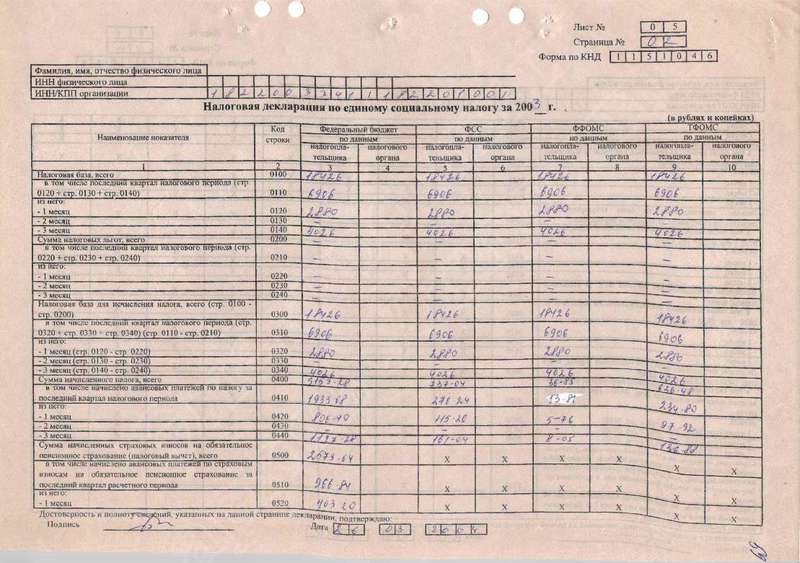 Лист № 0 5
Страница № 0 2
Форма по КНД 1 1 5 1 0 4 6
Фамилия, имя, отчество физического лица
ИНН физического лица
ИНН/КПП организации
Налоговая декларация по единому социальному налогу за 2003 г.
(в рублях и копейках)
Наименование показателя Код строки Федеральный бюджет ФСС ФФОМС ТФОМС
по данным по данным по данным по данным
налогопла-тельщика налогового органа налогопла-тельщика налогового органа налогопла-тельщика налогового органа налогопла-тельщика налогового органа
1 2 3 4 5 6 7 8 9 10
Налоговая база, всего 0100 18426 18426 18426 18426
в том числе последний квартал налогового периода (стр.
0120 + стр. 0130 + стр. 0140) 0110 6906 6906 6906 6906
из него:
- 1 месяц 0120 2880 2880 2880 2880
- 2 месяц 0130 – – – –
- 3 месяц 0140 4026 4026 4026 4026
Сумма налоговых льгот, всего 0200 – – – –
в том числе последний квартал налогового периода (стр.
0220 + стр. 0230 + стр. 0240) 0210 – – – –
из него:
- 1 месяц 0220 – – – –
- 2 месяц 0230 – – – –
- 3 месяц 0240 – – – –
Налоговая база для исчисления налога, всего (стр. 0100 -
стр. 0200) 0300 18426 18426 18426 18426
в том числе последний квартал налогового периода (стр.
0320 + стр. 0330 + стр. 0340) (стр. 0110 - стр. 0210) 0310 6906 6906 6906 6906
из него:
- 1 месяц (стр. 0120 - стр. 0220) 0320 2880 2880 2880 2880
- 2 месяц (стр. 0130 - стр. 0230) 0330 – – – –
- 3 месяц (стр. 0140 - стр. 0240) 0340 4026 4026 4026 4026
Сумма начисленного налога, всего 0400
в том числе начислено авансовых платежей по налогу за
последний квартал налогового периода 0410 1933-68 276 24 234-80
из него:
- 1 месяц 0420 806-40 115-20 5-76 97-92
- 2 месяц 0430 – – – –
- 3 месяц 0440 1127-28 161-04 8-05 136-88
Сумма начисленных страховых взносов на обязательное
пенсионное страхование (налоговый вычет), всего 0500 2579-64 X X X X X X
в том числе начислено авансовых платежей по страховым
взносам на обязательное пенсионное страхование за
последний квартал расчетного периода 0510 966-84 X X X X X X
из него:
- 1 месяц 0520 403-20 X X X X X X
Достоверность и полноту сведений, указанных на данной странице декларации, подтверждаю:
Подпись Дата 26 03 2004
69